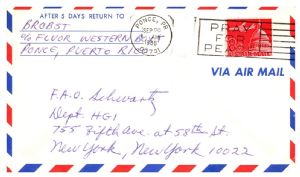 AFTER 5 DAYS RETURN TO
BROBST
c/o FLUOR WESTERN
PONCE, PUERTO RICO
PONCE, PR
SEP
PRAY
FOR
PEACE
VIA AIR MAIL
F.A.O. Schwartz
Dept HG1
755 Fifth Ave. at 58th St.
New York, New York 10022